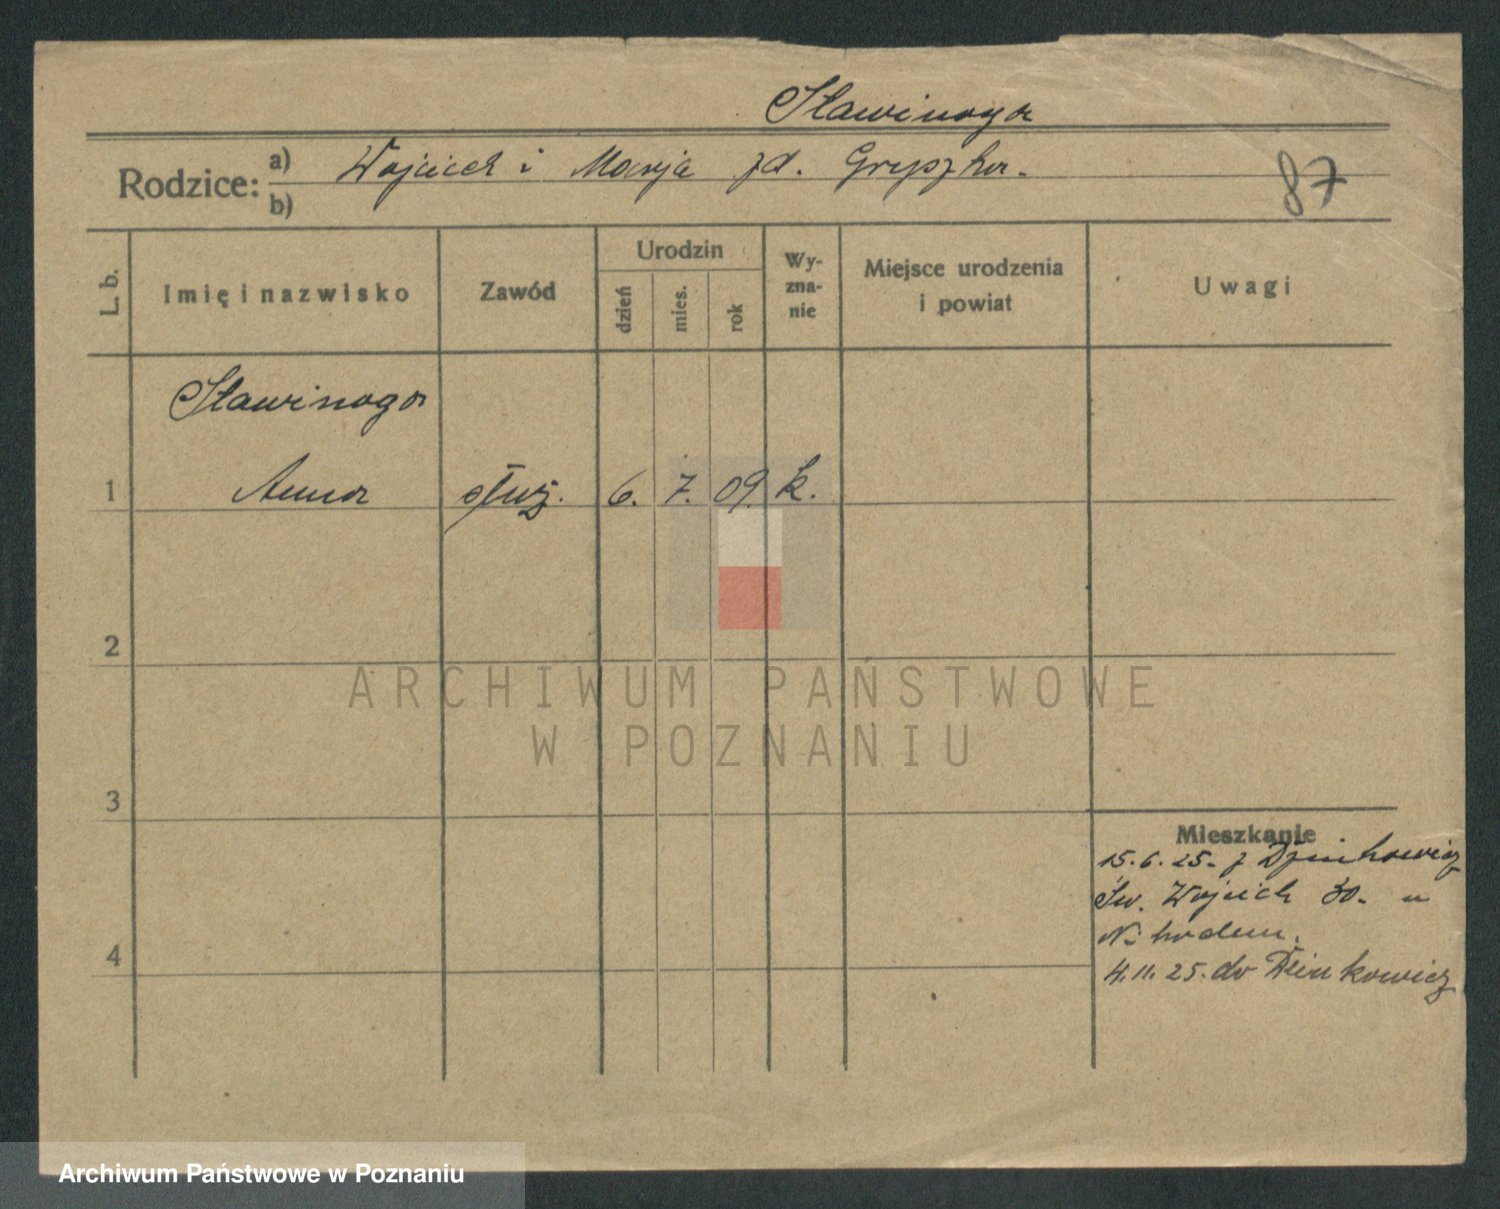 Sławinoga
Rodzice: a) Wojciech i Marja zd. Gryszka.
b)
87
L. b.
Imię i nazwisko
Zawód
Urodzin
dzień
mies.
rok
Wy-
zna-
nie
Miejsce urodzenia
i powiat
Uwagi
Sławinoga
1 Anna służ. 6. 7. 09. k.
2
ARCHIWUM PAŃSTWOWE
W POZNANIU
3
Mieszkanie
15.6.25. z
Św. Wojciech 30. u
4
4.11.25. do
Archiwum Państwowe w Poznaniu